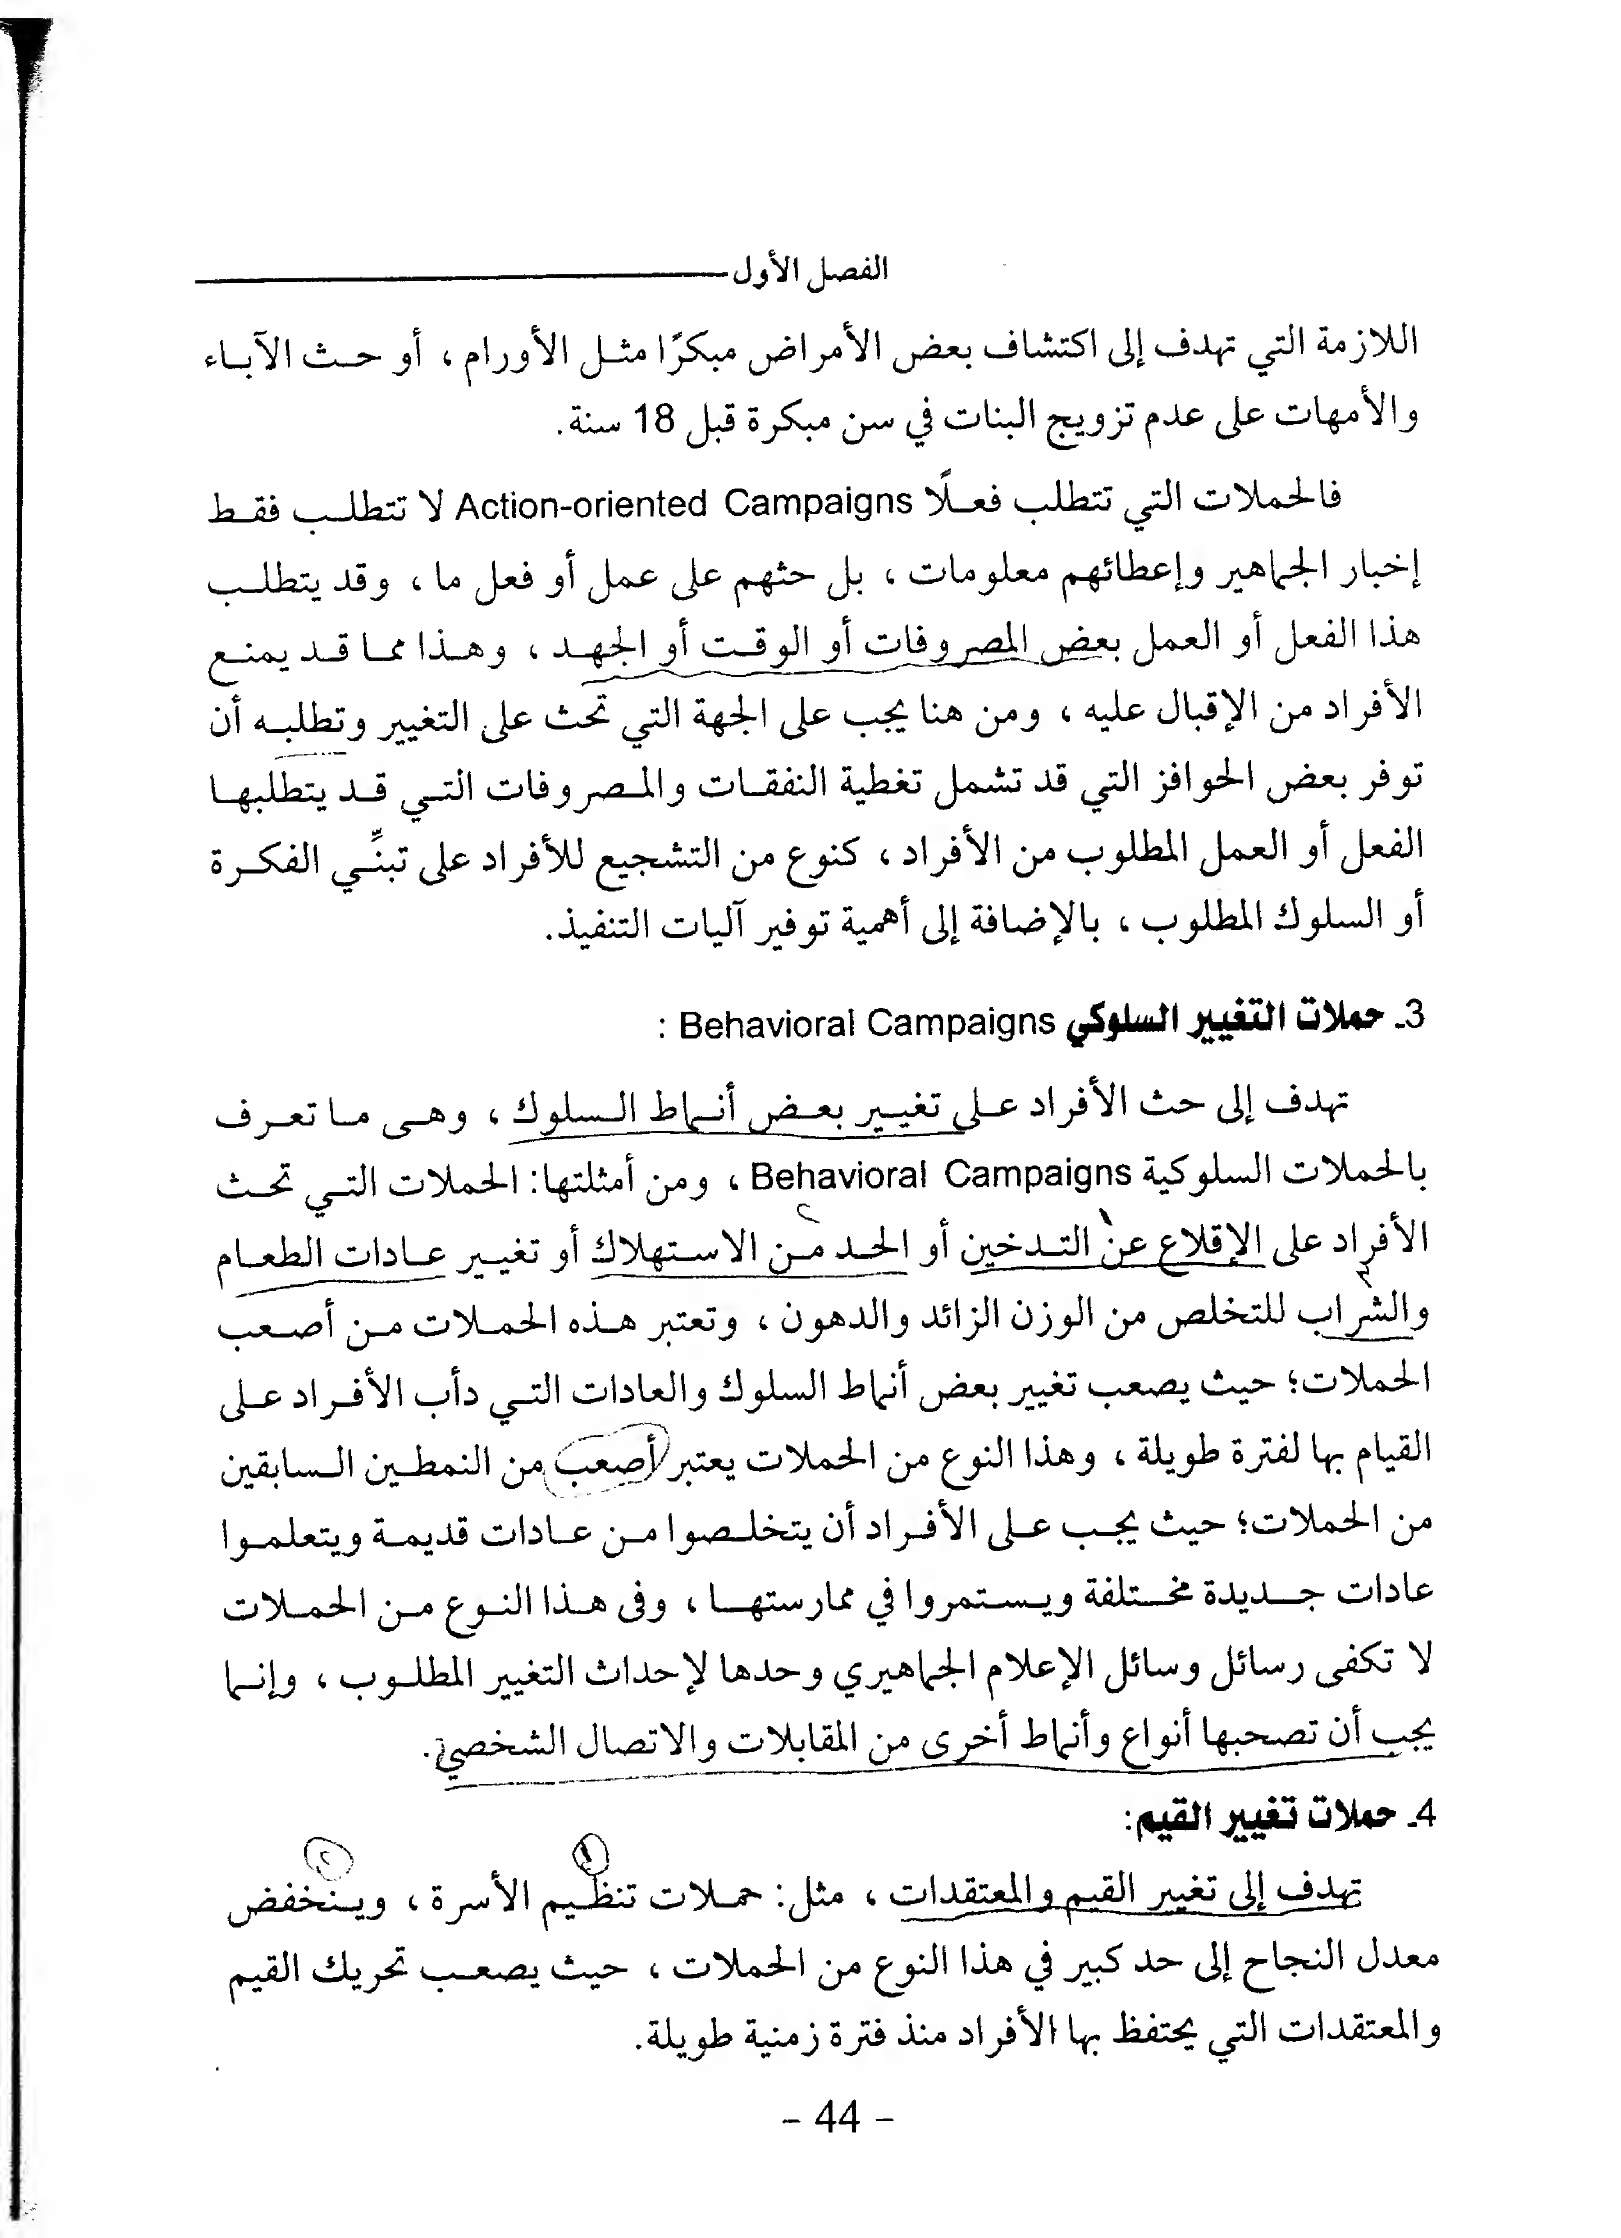 الفصل الأول
اللازمة التي تهدف إلى اكتشاف بعض الأمراض مبكرًا مثل الأورام ، أو حث الآباء
والأمهات على عدم تزويج البنات في سن مبكرة قبل 18 سنة.
فالحملات التي تتطلب فعلًا Action-oriented Campaigns لا تتطلب فقط
إخبار الجماهير وإعطائهم معلومات ، بل حثهم على عمل أو فعل ما ، وقد يتطلب
هذا الفعل أو العمل بعض المصروفات أو الوقت أو الجهد ، وهذا مما قد يمنع
الأفراد من الإقبال عليه ، ومن هنا يجب على الجهة التي تحث على التغيير وتطلبه أن
توفر بعض الحوافز التي قد تشمل تغطية النفقات والمصروفات التي قد يتطلبها
الفعل أو العمل المطلوب من الأفراد ، كنوع من التشجيع للأفراد على تبنِّي الفكرة
أو السلوك المطلوب ، بالإضافة إلى أهمية توفير آليات التنفيذ.
3ـ حملات التغيير السلوكي Behavioral Campaigns :
تهدف إلى حث الأفراد على تغيير بعض أنماط السلوك ، وهى ما تعرف
بالحملات السلوكية Behavioral Campaigns ، ومن أمثلتها: الحملات التي تحث
الأفراد على الإقلاع عن التدخين أو الحد من الاستهلاك أو تغيير عادات الطعام
والشراب للتخلص من الوزن الزائد والدهون ، وتعتبر هذه الحملات من أصعب
الحملات؛ حيث يصعب تغيير بعض أنماط السلوك والعادات التي دأب الأفراد على
القيام بها لفترة طويلة ، وهذا النوع من الحملات يعتبر أصعب من النمطين السابقين
من الحملات؛ حيث يجب على الأفراد أن يتخلصوا من عادات قديمة ويتعلموا
عادات جديدة مختلفة ويستمروا في ممارستها ، وفى هذا النوع من الحملات
لا تكفى رسائل وسائل الإعلام الجماهيري وحدها لإحداث التغيير المطلوب ، وإنما
يجب أن تصحبها أنواع وأنماط أخرى من المقابلات والاتصال الشخصي.
4ـ حملات تغيير القيم:
تهدف إلى تغيير القيم والمعتقدات ، مثل: حملات تنظيم الأسرة ، وينخفض
معدل النجاح إلى حد كبير في هذا النوع من الحملات ، حيث يصعب تحريك القيم
والمعتقدات التي يحتفظ بها الأفراد منذ فترة زمنية طويلة.
- 44 -